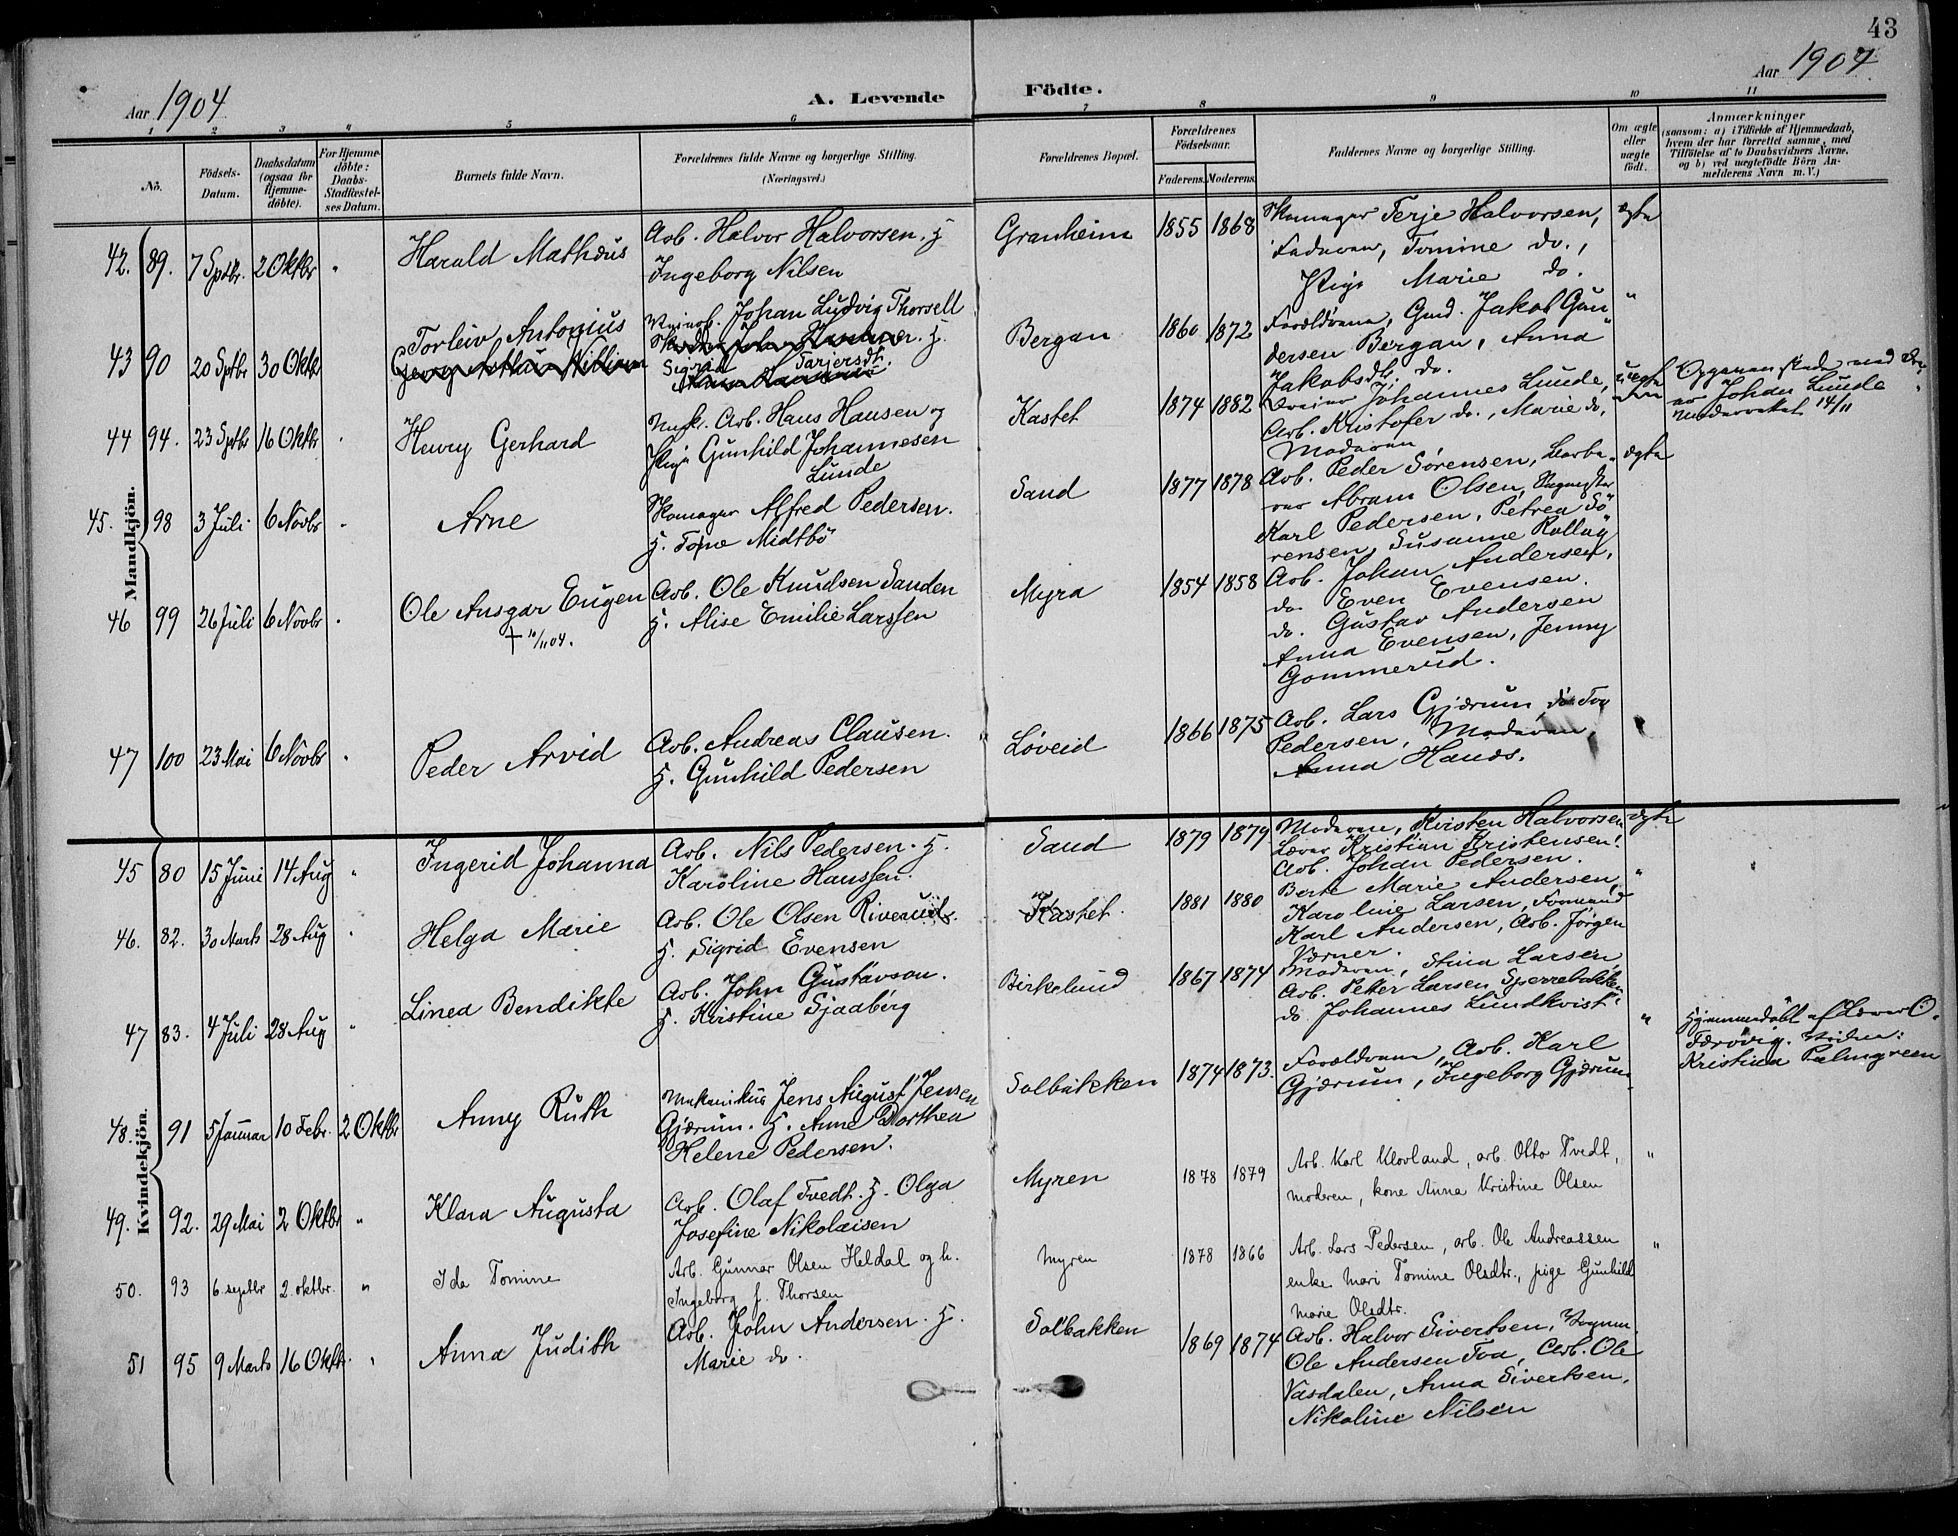 43
Aar 1904
A. Levende Födte.
Aar 1904
1 2 3 4 5 6 7 8 9 10 11
No.
Födsels-Datum.
Daabsdatum (ogsaa for Hjemme-döbte).
For Hjemme-döbte: Daabs-Stadfæstel-ses Datum.
Barnets fulde Navn.
Forældrenes fulde Navne og borgerlige Stilling. (Næringsvei.)
Forældrenes Bopæl.
Forældrenes Födselsaar.
Faderens. Moderens.
Faddernes Navne og borgerlige Stilling.
Om ægte eller uægte födt.
Anmærkninger
(saasom: a) i Tilfælde af Hjemmedaab, hvem der har forrettet samme, med Tilföielse af to Daabsvidners Navne. og b) ved uægtefödte Börn Anmelderens Navn m. V.)
Mandkjön.
42. 89. 7 Sptbr. 2 Oktbr "
Harald Mathæus
Arb. Halvor Halvorsen. H.
Ingeborg Nilsen
Granheim 1855 1868
Skomager Terje Halvorsen,
Faderen, Tomine do.,
Pige Marie do.
ægte
43 90 20 Sptbr 30 Oktbr
Torleiv Antonius
Johan Ludvig Thorsell
H.
Sigrid Tarjersdt.
Bergan 1860 1872
Forældrene, Gmd. Jakob Gun
dersen Bergan, Anna
Jakobsdt. do.
"
44 94. 23 Sptbr 16 Oktbr "
Henry Gerhard
Arb. Hans Hansen og
Pige Gunhild Johannesen
Lunde
Kastet 1874 1882
Johannes Lunde,
Arb. Kristofer do., Marie do,
Moderen
uægte
Johan Lunde
14/11
45. 98 3 Juli 6 Novbr "
Arne
Skomager Alfred Pedersen.
H. Tone Midtbö
Sand 1877 1878
Arb. Peder Sörensen,
Abram Olsen,
Karl Pedersen, Petrea Sö
rensen, Susanne Rolla
ægte
46 99 26 Juli 6 Novbr "
Ole Ansgar Eugen
† 10/11 04.
Arb. Ole Knudsen Sanden
H. Alise Emilie Larssen
Myra 1854 1858
Arb. Johan Andersen,
do. Even Evensen.
do. Gustav Andersen
Anna Evensen, Jenny
Gommerud.
47 100 23 Mai 6 Novbr "
Peder Arvid
Arb. Andreas Clausen.
H. Gunhild Pedersen
Løveid 1866 1875
Arb. Lars Gjærum, do Tov
Pedersen, Moderen,
Anna Hands.
"
Kvindekjön.
45 80 15 Juni 14 Aug "
Ingerid Johanna
Arb. Nils Pedersen. H.
Karoline Hanssen.
Sand 1879 1879
Moderen, Kristen Halvorsen
Lærer Kristian Kristensen.
Arb. Johan Pedersen.
ægte
46. 82. 30 Marts 28 Aug "
Helga Marie
Arb. Ole Olsen
H. Sigrid Evensen
Kastet. 1881 1880
Berte Marie Andersen,
Karoline Larsen, Formand
Karl Andersen, Arb. Jørgen
Værner.
"
47 83. 4 Juli 28 Aug "
Linea Bendikte
Arb. John Gustavson.
H. Kristine Sjaaberg
Birkelund 1867 1874
Moderen, Stina Larsen
Arb. Petter Larsen Sperrebakken
do Johannes Lundkvist
"
48. 91 5 Januar 10 Febr. 2 Oktbr
Anny Ruth
Mekanikus Jens August Jensen
Gjærum. H. Anne Dorthea
Helene Pedersen.
Solbakken 1874 1873.
Forældrene, Arb. Karl
Gjærum, Ingeborg Gjærum
Hjemmedöbt af Lærer O.
Færövig.
Kristina Palmgreen
49. 92. 29 Mai 2 Oktbr "
Klara Augusta
Arb. Olaf Tvedt. H. Olga
Josefine Nikolaisen
Myren 1878 1879
Arb. Karl Klovland, arb. Otto Tvedt,
moderen, kone Anna Kristine Olsen
"
50. 93 6. septbr 2. oktbr. "
Ida Tomine
Arb. Gunnar Olsen Heldal og h.
Ingeborg f. Thorsen
Myren 1878 1866
Arb. Lars Pedersen, arb. Ole Andreassen
enke Mari Tomine Olsdtr., pige Gunhild
Marie Olsdtr.
"
51 95 9 Marts 16 Oktbr. "
Anna Judith
Arb. John Andersen. H.
Marie do.
Solbakken 1869 1874
Arb. Halvor Sivertsen,
Ole Andersen Tva, Arb. Ole
Vasdalen, Anna Sivertsen,
Nikoline Nilsen